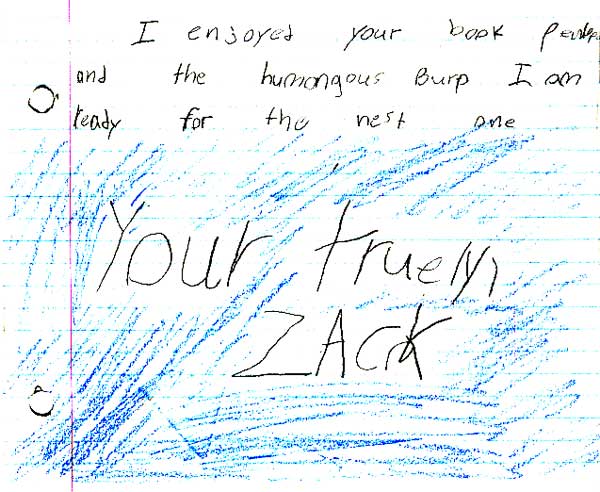 I enjoyed your book
and the humongous Burp I am
ready for the nest one
Your truely,
ZACK